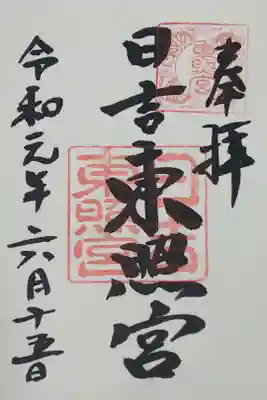 奉拝
日吉東照宮
令和元年六月十五日
日吉東照宮